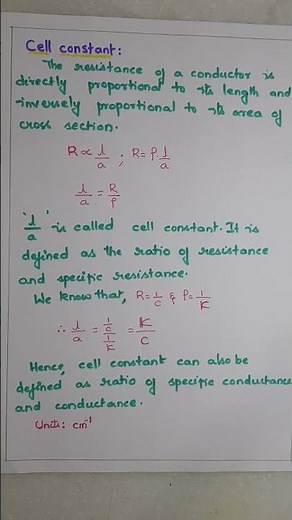 Cell constant:
The resistance of a conductor is
directly proportional to its length and
inversely proportional to its area of
cross section.
R ∝ l/a ; R = ρ.l/a
l/a = R/ρ
'l/a' is called cell constant. It is
defined as the ratio of resistance
and specific resistance.
We know that, R = 1/C & ρ = 1/K
∴ l/a = (1/C)/(1/K) = K/C
Hence, cell constant can also be
defined as ratio of specific conductance
and conductance.
Units: cm⁻¹